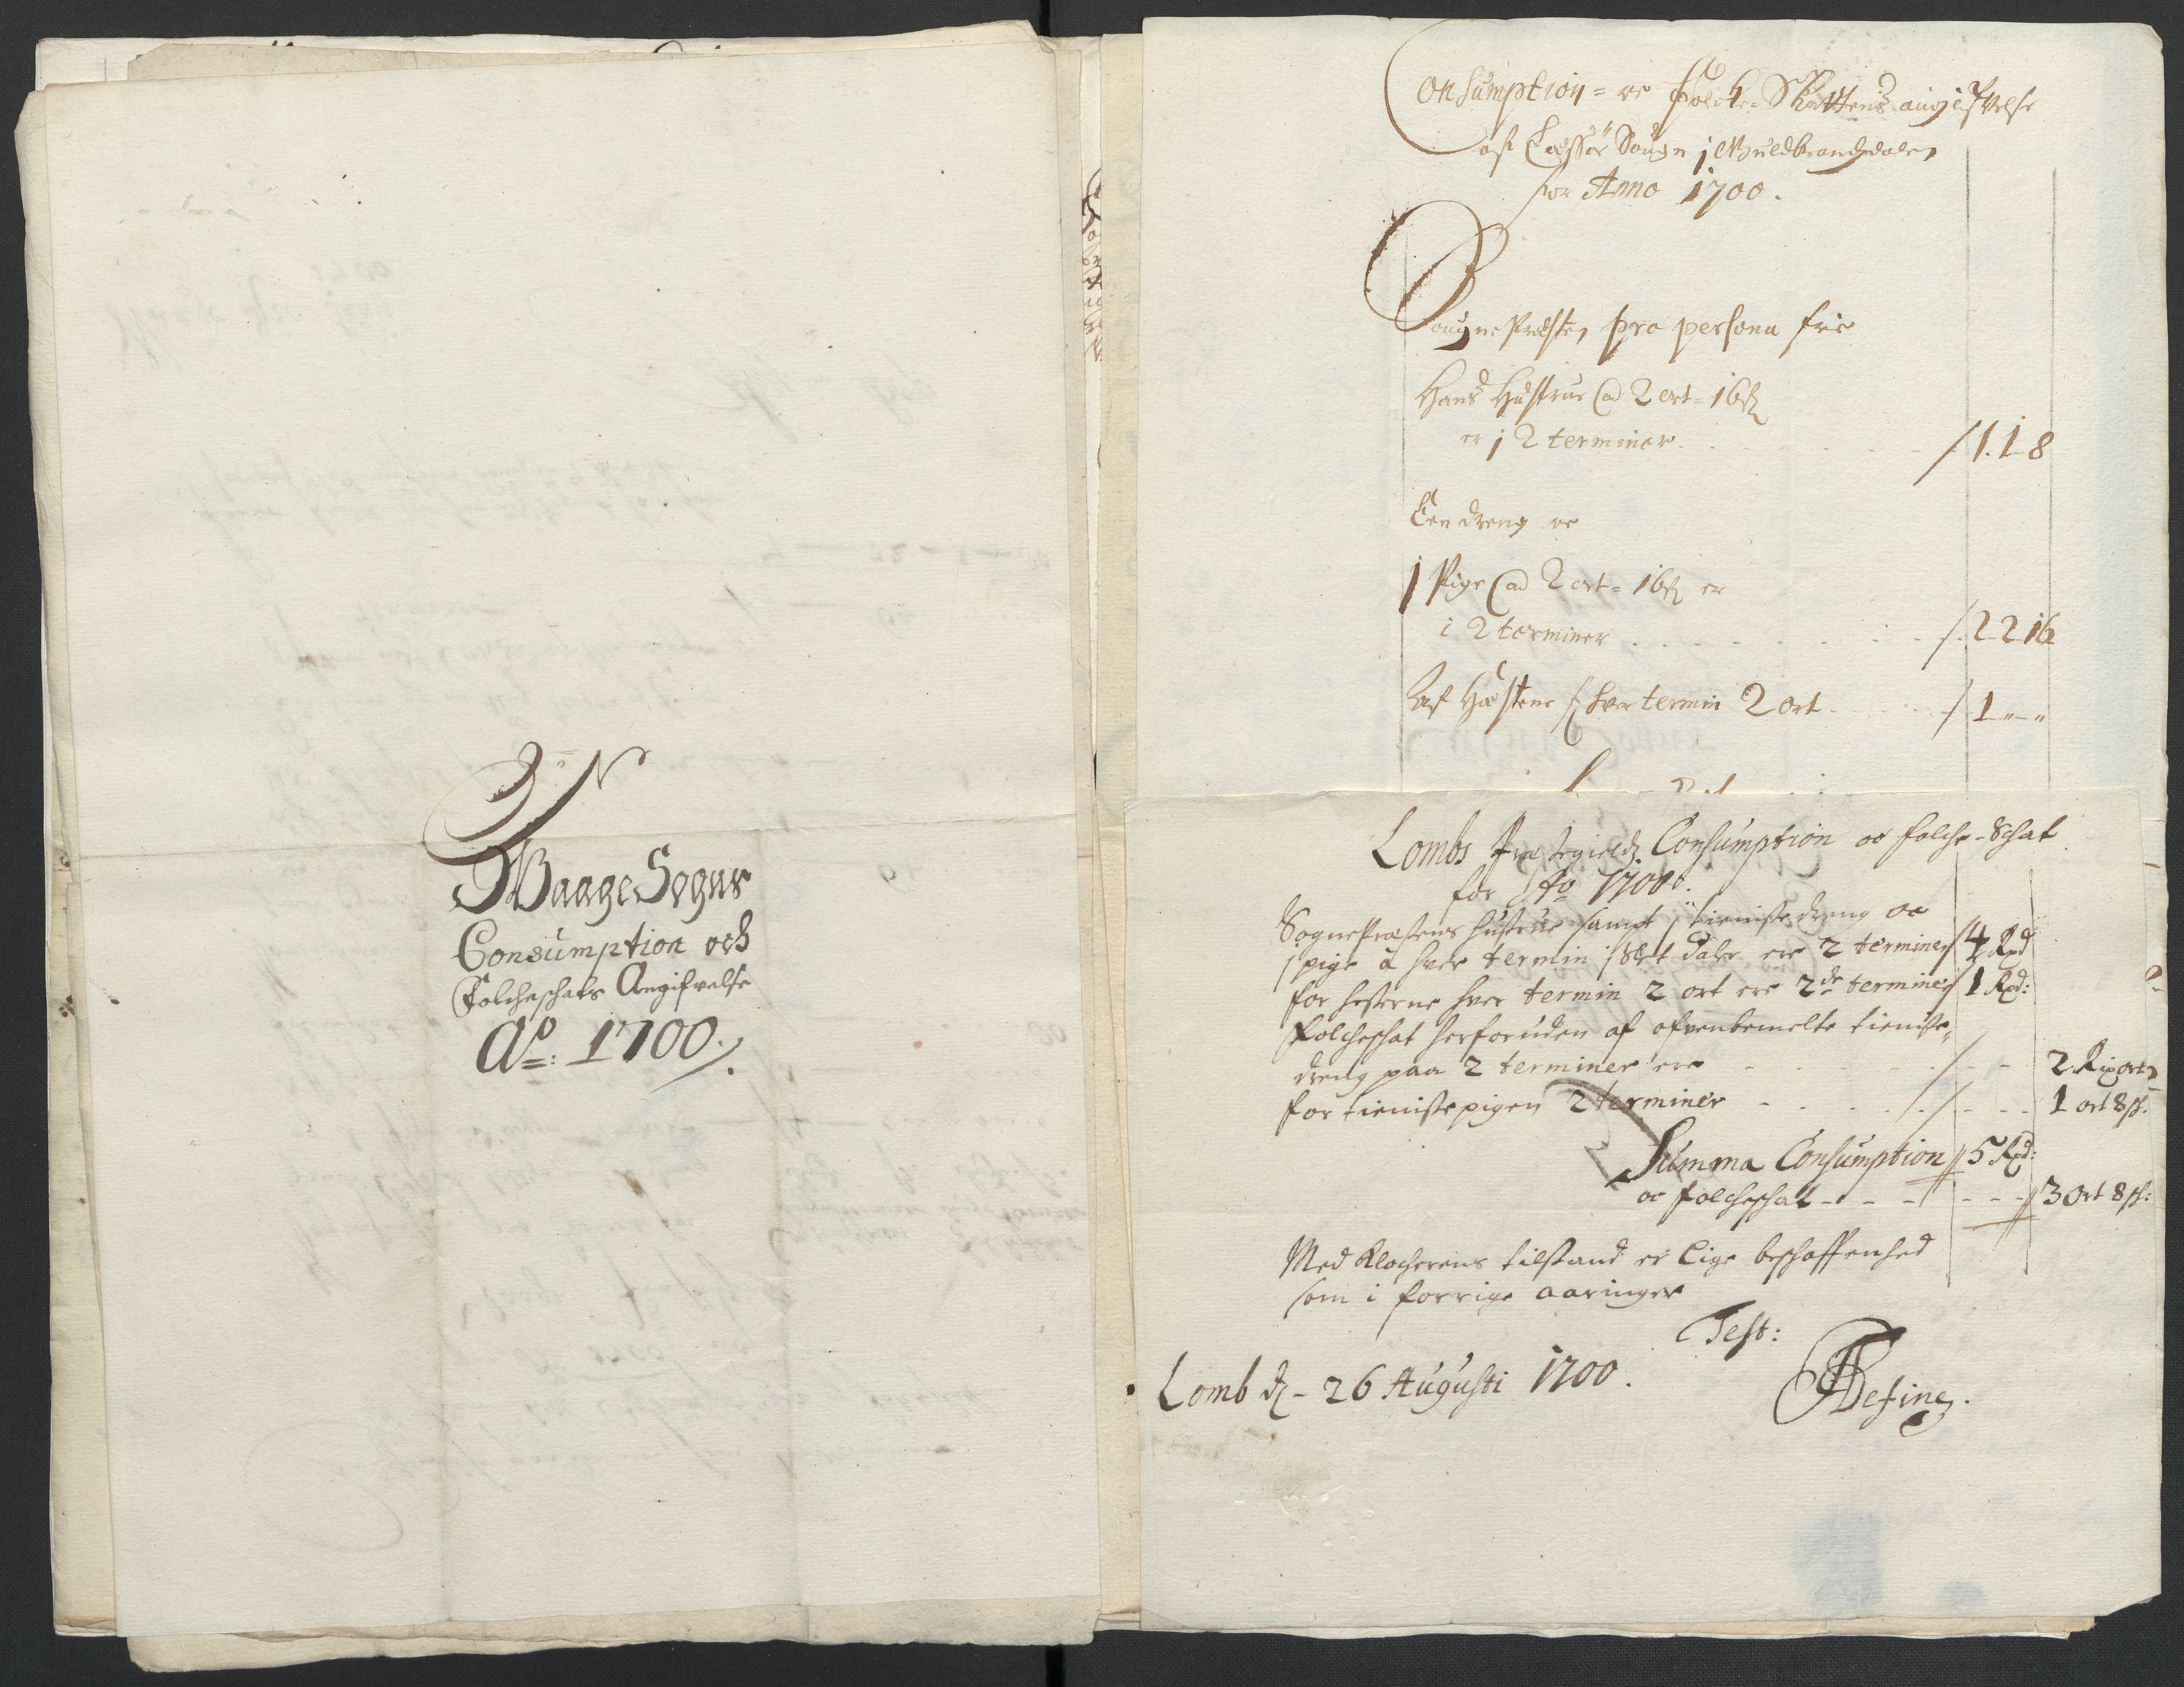 Waage Sogns
Consumption och
Folcheschats Angifvelse
Ao: 1700.
Consumption = oc Folcke-Skattens angifvelse
af Lessøe Sougn j Guldbrandsdalen
for Anno 1700.
Sougnepræsten, pro persona frie
Hans Hustrue @ 2 ort = 16 ß
er j 2 terminer - - - - / 1. 1 - 8
Een dreng oc
1 Pige @ 2 ort = 16 ß er
i 2 terminer . - - - - - - / 2 2 16
Af Hæstene hver termin 2 ort - - - / 1 " - "
Lombs Præstegields Consumption oc folche-Schat
for Ao 1700.
SognePræstens hustrue sampt j tieniste dreng oc
j pige à hver termin j Slet daler ere 2 terminer 4 Rd
for hesterne hver termin 2 ort ere 2de terminer 1 Rd:
folcheschat herforuden af ofvenbemelte tieniste-
dreng paa 2 terminer ere - - - - - / - - 2. Rix ort
for tienistepigen 2 terminer - - - - - / - - - 1 ort 8 sh.
Summa Consumption 5 Rd:
oc folcheschat - - - - - - - 3 Ort 8 sh:
Med Klocherens tilstand er lige beschaffenhed
som i forrige aaringer
Test:
Lomb d. - 26 Augusti 1700.